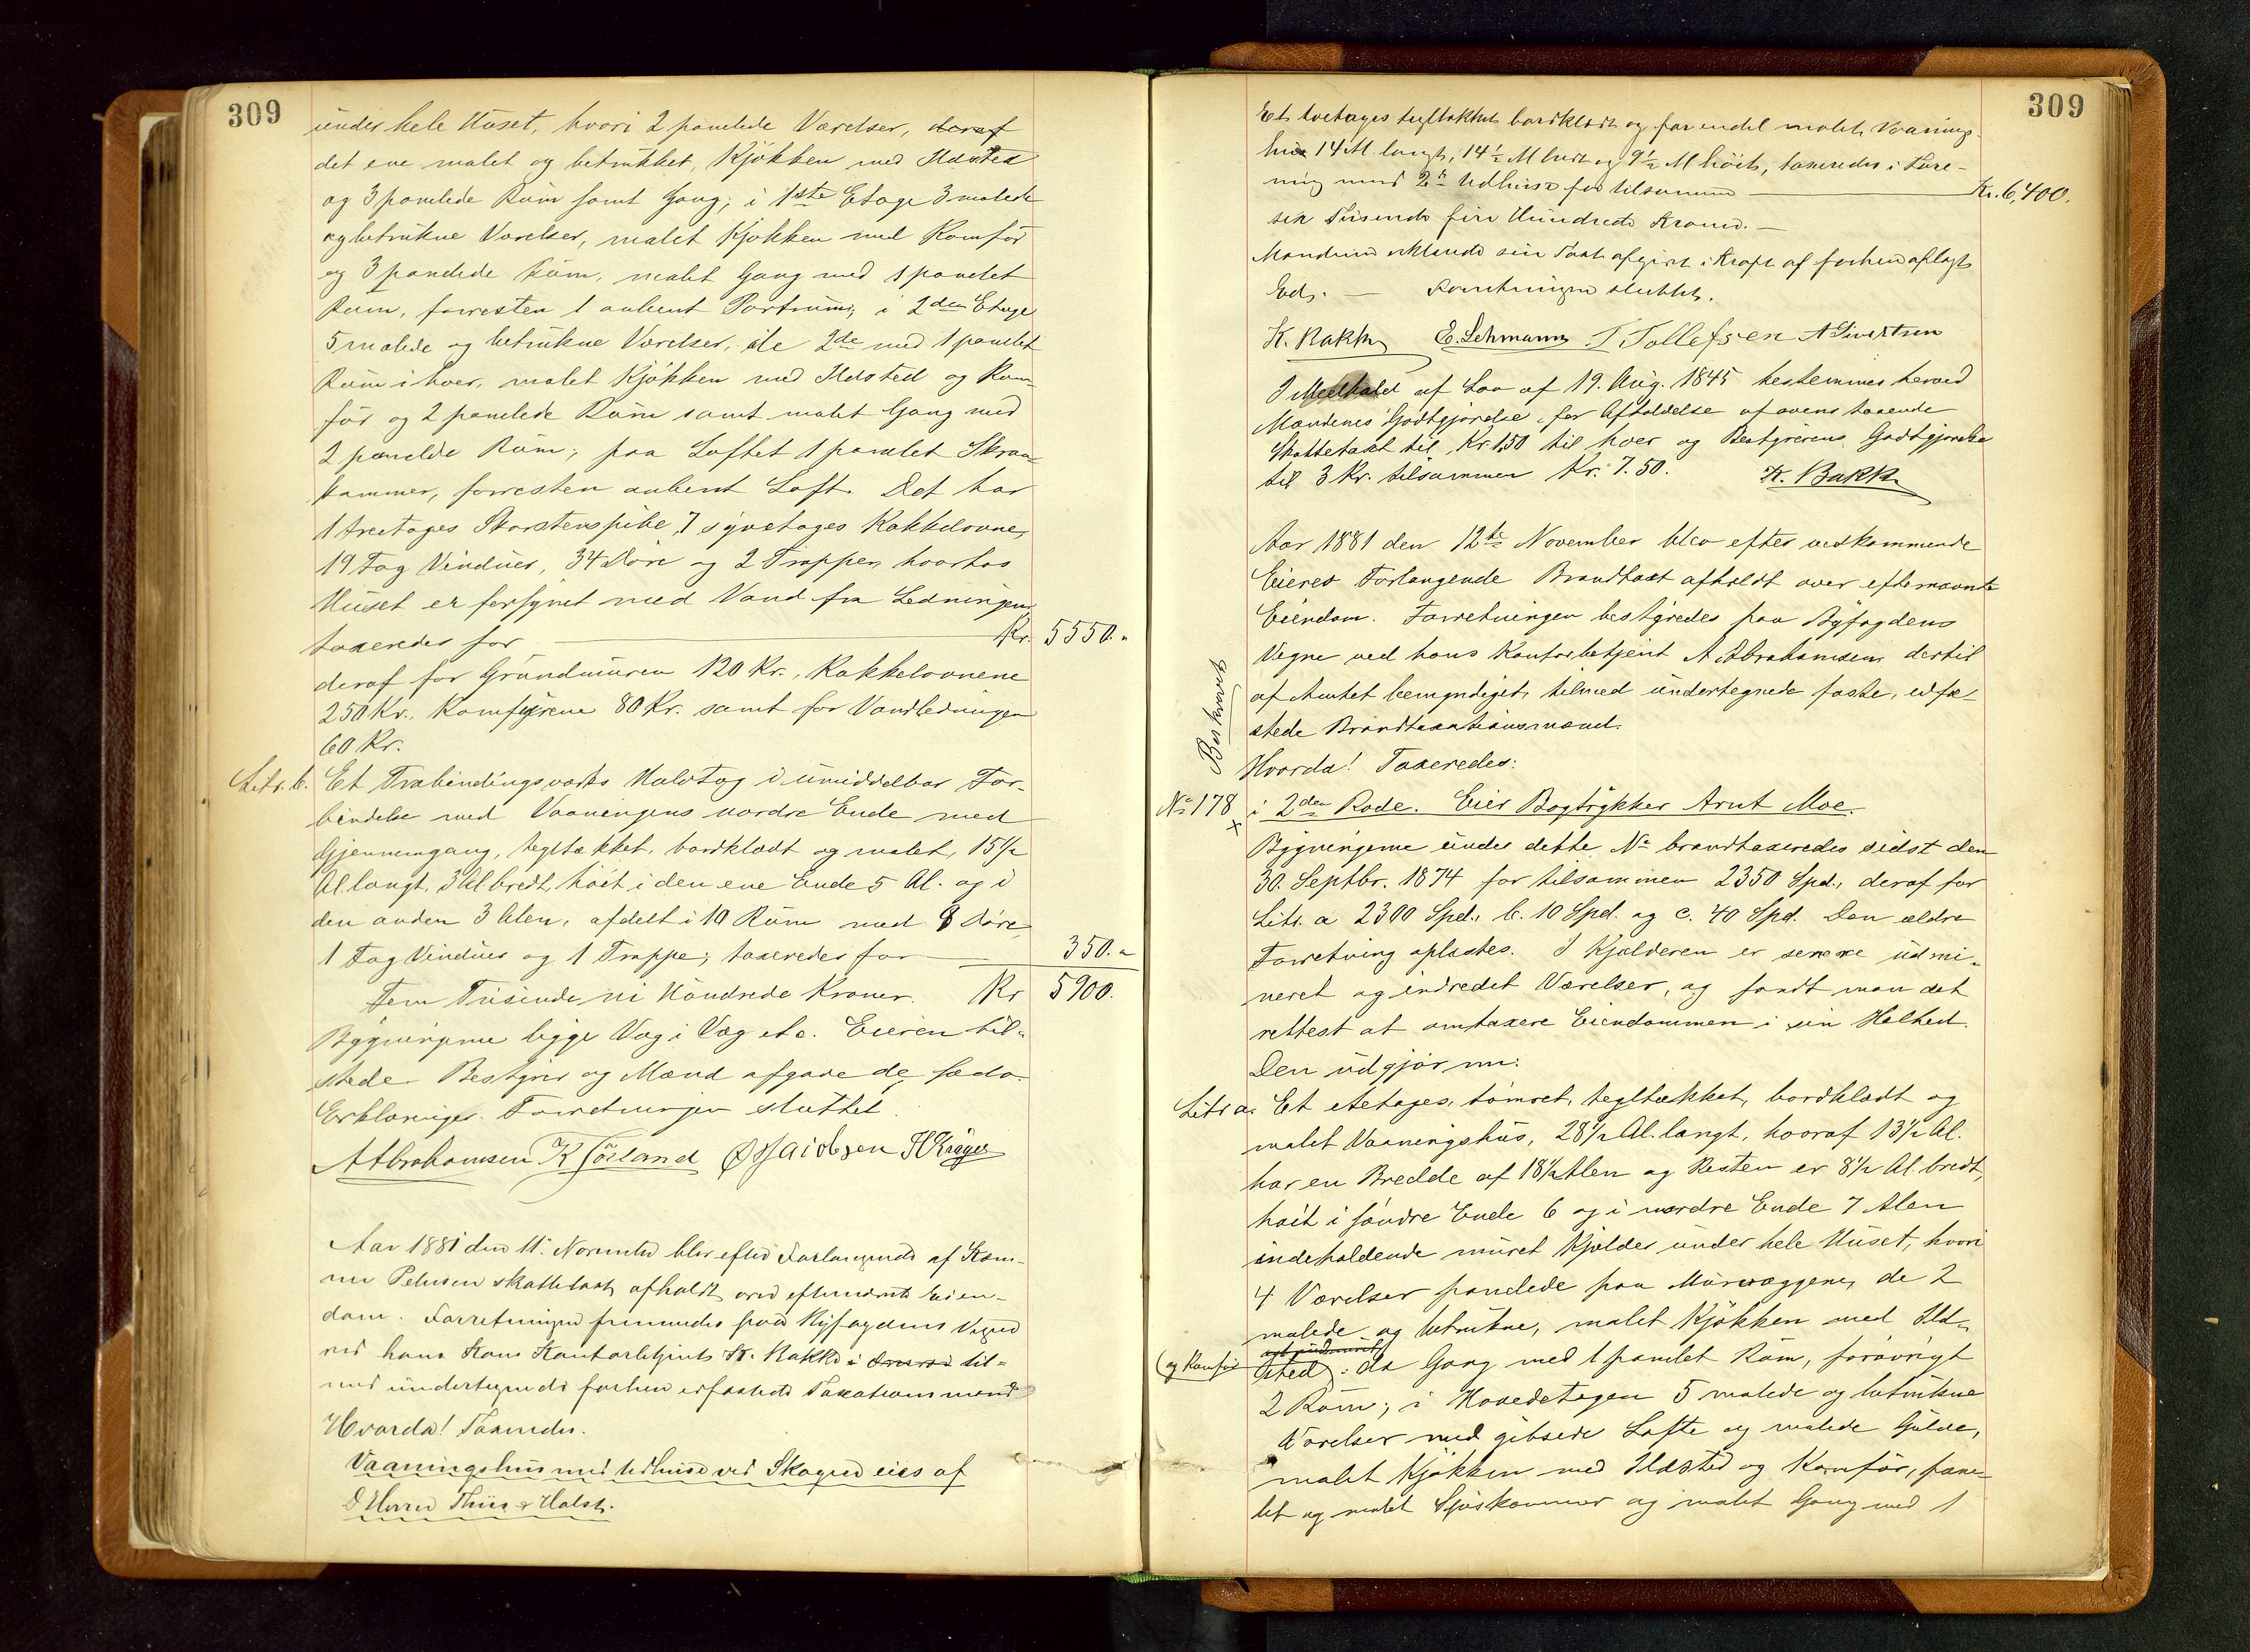 309
under hele Huset, hvori 2 panelede Værelser, deraf
det ene malet og betrukket, Kjøkken med Ildsted
og 3 panelede Rum samt Gang; i 1ste Etage 3 malede
og betrukne Værelser, malet Kjøkken med Komfør
og 3 panelede Rum, malet Gang med 1 panelet
Rum, forresten 1 aabent Portrum; i 2den Etage
5 malede og betrukne Værelser, de 2de med 1 panelet
Rum i hver, malet Kjøkken med Ildsted og Kom-
før og 2 panelede Rum samt malet Gang med
2 panelede Rum; paa Loftet 1 panelet Skraa-
kammer, forresten aabent Loft. Det har
1 treetages Skorstenspibe, 7 syvetages Kakkelovne,
19 Fag Vinduer, 34 Døre og 2 Trapper, hvorhos
Huset er forsynet med Vand fra Ledningen,
taxeredes for Kr. 5550.
deraf for Grundmuren 120 Kr., Kakkelovnene
250 Kr., Komfyrene 80 Kr. samt for Vandledningen
60 Kr.
Litr. b. Et Træbindingsværks Halvtag i umiddelbar For-
bindelse med Vaaningens nordre Ende med
Gjennemgang, tegltækket, bordklædt og malet, 15½
Al. langt, 3 Al. bredt, høit i den ene Ende 5 Al. og i
den anden 3 Alen, afdelt i 10 Rum med 8 Døre,
1 Fag Vinduer og 1 Trappe; taxeredes for 350.
Fem Tusinde ni Hundrede Kroner. Kr 5900.
Bygningerne ligge Væg i Væg etc. Eieren til-
stede. Bestyrer og Mænd afgave de sædv.
Erklæringer. Forretningen sluttet.
A Abrahamsen K Sørland O Jacobsen H Krøger
Aar 1881 den 11. November blev efter Forlangende af Kæm-
ner Petersen skattetaxt afholdt over efternævnte Eien-
dom. Forretningen fremmedes paa Byfogdens Vegne
ved hans Kontorbetjent K. Bakke til-
med undertegnede forhen edfæstede Taxationsmænd
Hvorda! Taxeredes.
Vaaningshus med Udhuse ved Skagen eies af
D'Herrer Thiis & Halst.
309
Et toetages tegltækket bordklædt og for endel malet Vaanings-
hus 14 Al langt, 14½ Al bredt og 9½ Al høit, taxeredes i Fore-
ning med 2de Udhuse for tilsammen Kr. 6,400.
sex Tusende fire Hundrede Kroner.
Mændene erklærede sin Taxt afgivet i Kraft af forhen aflagt
Ed. — Forretningen sluttet.
K. Bakke E. Lehmann T Tollefsen A Sivertsen
I Medhold af Lov af 19. Aug. 1845 bestemmes herved
Mændenes Godtgjørelse for Afholdelse af ovenstaaende
Skattetaxt til Kr. 1,50 til hver og Bestyrerens Godtgjørelse
til 3 Kr. tilsammen Kr. 7.50. K. Bakke
Aar 1881 den 12te November blev efter vedkommende
Eieres Forlangende Brandtaxt afholdt over efternævnte
Eiendom. Forretningen bestyredes paa Byfogdens
Vegne ved hans Kontorbetjent A Abrahamsen dertil
af Amtet bemyndiget, tilmed undertegnede faste, edfæ-
stede Brandtaxationsmænd.
Beskrevet
Hvorda! Taxeredes:
No 178 i 2den Rode. Eier Bogtrykker Arnt Moe.
x
Bygningerne under dette No brandtaxeredes sidst den
30. Septbr. 1874 for tilsammen 2350 Spd., deraf for
Litr. a 2300 Spd., b. 10 Spd. og c. 40 Spd. Den ældre
Forretning oplæstes. I Kjælderen er senere udmi-
neret og indredet Værelser, og fandt man det
rettest at omtaxere Eiendommen i sin Helhed.
Den udgjør nu:
Litr a. Et etetages, tømret, tegltækket, bordklædt og
malet Vaaningshus, 28½ Al. langt, hvoraf 13½ Al.
har en Bredde af 18½ Alen og Resten er 8½ Al. bredt,
høit i søndre Ende 6 og i nordre Ende 7 Alen
indeholdende muret Kjelder under hele Huset, hvori
4 Værelser panelede paa Murvæggene, de 2
malede og betrukne, malet Kjøkken med Ild-
(og Komfør sted): da Gang med 1 panelet Rum, forøvrigt
2 Rum; i Hovedetagen 5 malede og betrukne
Værelser med gibsede Lofte og malede Gulve,
malet Kjøkken med Ildsted og Komfør, pane-
let og malet Spiskammer og malet Gang med 1